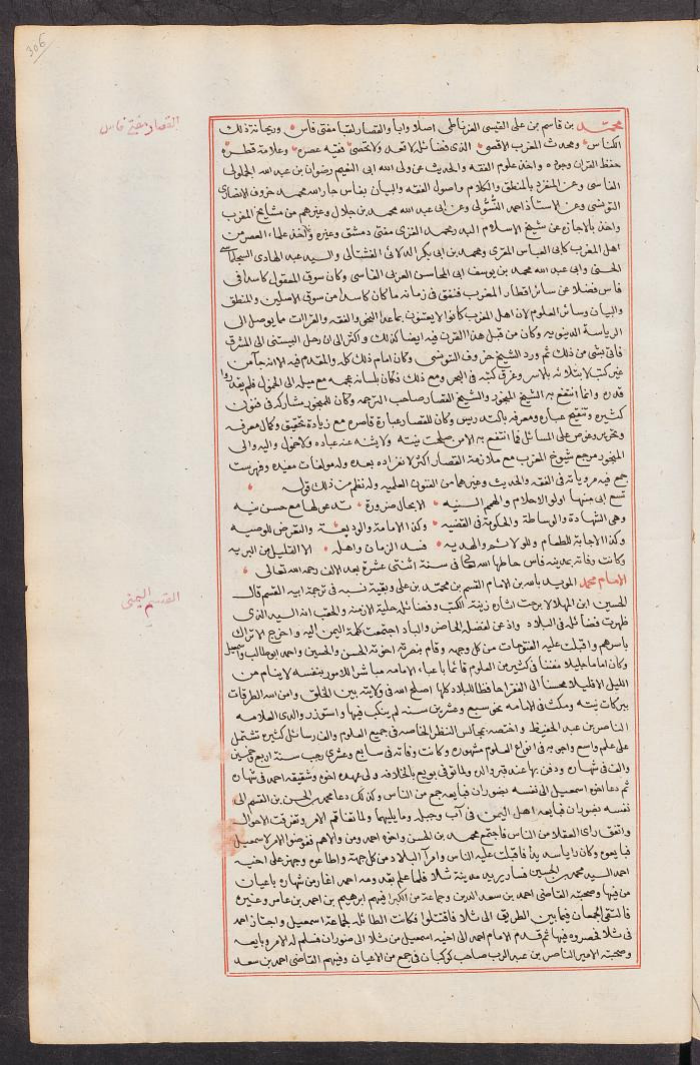 306
القصار مفتي فاس
محمد بن قاسم بن على القيسى الغرناطى اصلا وابا والقصار لقبا مفتى فاس وريحانة ذلك
الكناس ومحدث المغرب الاقصى الذى فضائله لا تعد ولا تحصى فقيه عصره وعلامة قطره
حفظ القران وجوده واخذ علوم الفقه والحديث عن ولى الله ابى النعيم رضوان بن عبد الله الجلولى
الفاسى وعن المنفرد بالمنطق والكلام واصول الفقه والبيان بفاس جار الله محمد خروف الانصارى
التونسى وعن الاستاذ احمد التسولى وعن ابى عبد الله محمد بن جلال وغيرهم من مشايخ المغرب
واخذ بالاجازة عن شيخ الاسلام البدر محمد الغزى مفتى دمشق وغيره واخذ علماء العصر من
اهل المغرب كابى العباس المقرى ومحمد بن ابى بكر الدلائى الفشتالى والسيد عبد الهادى السجلماسى
الحسنى وابى عبد الله محمد بن يوسف ابى المحاسن العربى الفاسى وكان سوق المعقول كاسدا فى
فاس فضلا عن سائر اقطار المغرب فنفق فى زمانه ما كان كاسدا من سوق الاصلين والمنطق
والبيان وسائر العلوم لان اهل المغرب كانوا لا يعتنون بما عدا النحو والفقه والقرآات مما يوصل الى
الرياسة الدنيويه وكان من قبل هذا القرن فيه ايضا كذلك واكثر الى ان رحل اليستنى الى المشرق
فاتى بشئ من ذلك ثم ورد الشيخ خروف التونسى وكان امام ذلك كله والمقدم فيه الا انه جآ من
غير كتب لابتلائه بالاسر وغرق كتبه فى البحر ومع ذلك فكان بلسانه عجمه مع ميله الى الخمول فلم يقدروا
قدره وانما انتفع به الشيخ المنجور والشيخ القصار صاحب الترجمه وكان للمنجور مشاركه فى فنون
كثيره وتنقيح عباره ومعرفه بالتدريس وكان للقصار عبارة قاصره مع زيادة تحقيق وكمال معرفه
وتحرير وغوص على المسائل فما انتفع به الا من صلحت نيته ولا يثنه عنه عباده ولا خمول واليه والى
المنجور مرجع شيوخ المغرب مع ملازمة القصار اكثر لانفراده بعده وله مولفات مفيده وفهرست
جمع فيه مروياته فى الفقه والحديث وغيرهما من الفنون العلميه وله نظم من ذلك قوله
تسع ابى منها اولو الاحلام والهمم السنيه الا بحال ضرورة تدعو لها مع حسن نيه
وهى الشهادة والوساطة والحكومة فى القضيه وكذا الامامة والوديعة والتعرض للوصيه
وكذا الاجابة للطعام وللولائم والهديه فسد الزمان واهله الا القليل من البريه
وكانت وفاته بمدينه فاس حاطها الله تعالى فى سنة اثنتى عشرة بعد الالف رحمه الله تعالى
القسم اليمنى
الامام محمد المويد بالله بن الامام القسم بن محمد بن على وبقية نسبه فى ترجمة ابيه القسم قال
الحسين ابن المهلا لا برحت اثاره زينة الكتب وفضائله حلية الازمنه والحقب انه السيد الذى
ظهرت فضائله فى البلاد واذعن لفضله الحاضر والباد اجتمعت كلمة اليمن اليه واخرج الاتراك
باسرهم واقبلت عليه الفتوحات من كل وجهه وقام بنصرته اخوته الحسن والحسين واحمد ابو طالب واسمعيل
وكان اماما جليلا مفننا فى كثير من العلوم قائما باعباء الامامه مباشرا للامور بنفسه لا ينام من
الليل الا قليلا محسنا الى الفقرا حافظا للبلاد كلها اصلح الله فى ولايته بين الخلق وامن الله الطرقات
ببركات نيته ومكث فى الامامه نحو سبع وعشرين سنه لم ينكب فيها واستوزر والدى العلامه
الناصر بن عبد الحفيظ واختصه بمجالس النظر الخاصه فى جميع العلوم والف رسائل كثيره تشتمل
على علم واسع واجوبه فى انواع العلوم مشهوره وكانت وفاته فى سابع وعشرى رجب سنة اربع وخمسين
والف فى شهاره ودفن بها عند قبر والده ولما توفى بويع بالخلافه ولى عهده اخوه وشقيقه احمد فى شهاره
ثم دعا اخوه اسمعيل الى نفسه بضوران فبايعه جمع من الناس وكذلك دعا محمد بن الحسن بن القسم الى
نفسه بضوران فبايعه اهل اليمن فى آب وجبله وما يليهما ولما تفاقم الامر وتفرقت الاحوال
واتفق راى العقلا من الناس فاجتمع محمد بن الحسن واخوه احمد ومن والاهم ففوضوا الامر لاسمعيل
فبايعوه وكان رايا سديدا فاقبلت عليه الناس وامرآ البلاد من كل جهة واطاعوه وجهز على اخيه
احمد السيد محمد بن الحسين فسار يريد مدينة ثلا فلما علم بقدومه احمد اغار من شهاره باعيان
من فيها وصحبته القاضى احمد بن سعد الدين وجماعة من الكبرا فيهم ابرهيم بن احمد بن عامر وغيره
فالتقى الجمعان فيما بين الطريق الى ثلا فاقتتلوا فكانت الطائله لجماعة اسمعيل واجتاز احمد
فى ثلا فحصروه فيها ثم قدم الامام احمد الى اخيه اسمعيل من ثلا الى ضوران فسلم له الامر وبايعه
وصحبته الامير الناصر بن عبد الرب صاحب كوكبان فى جمع من الاعيان وفيهم القاضى احمد بن سعد